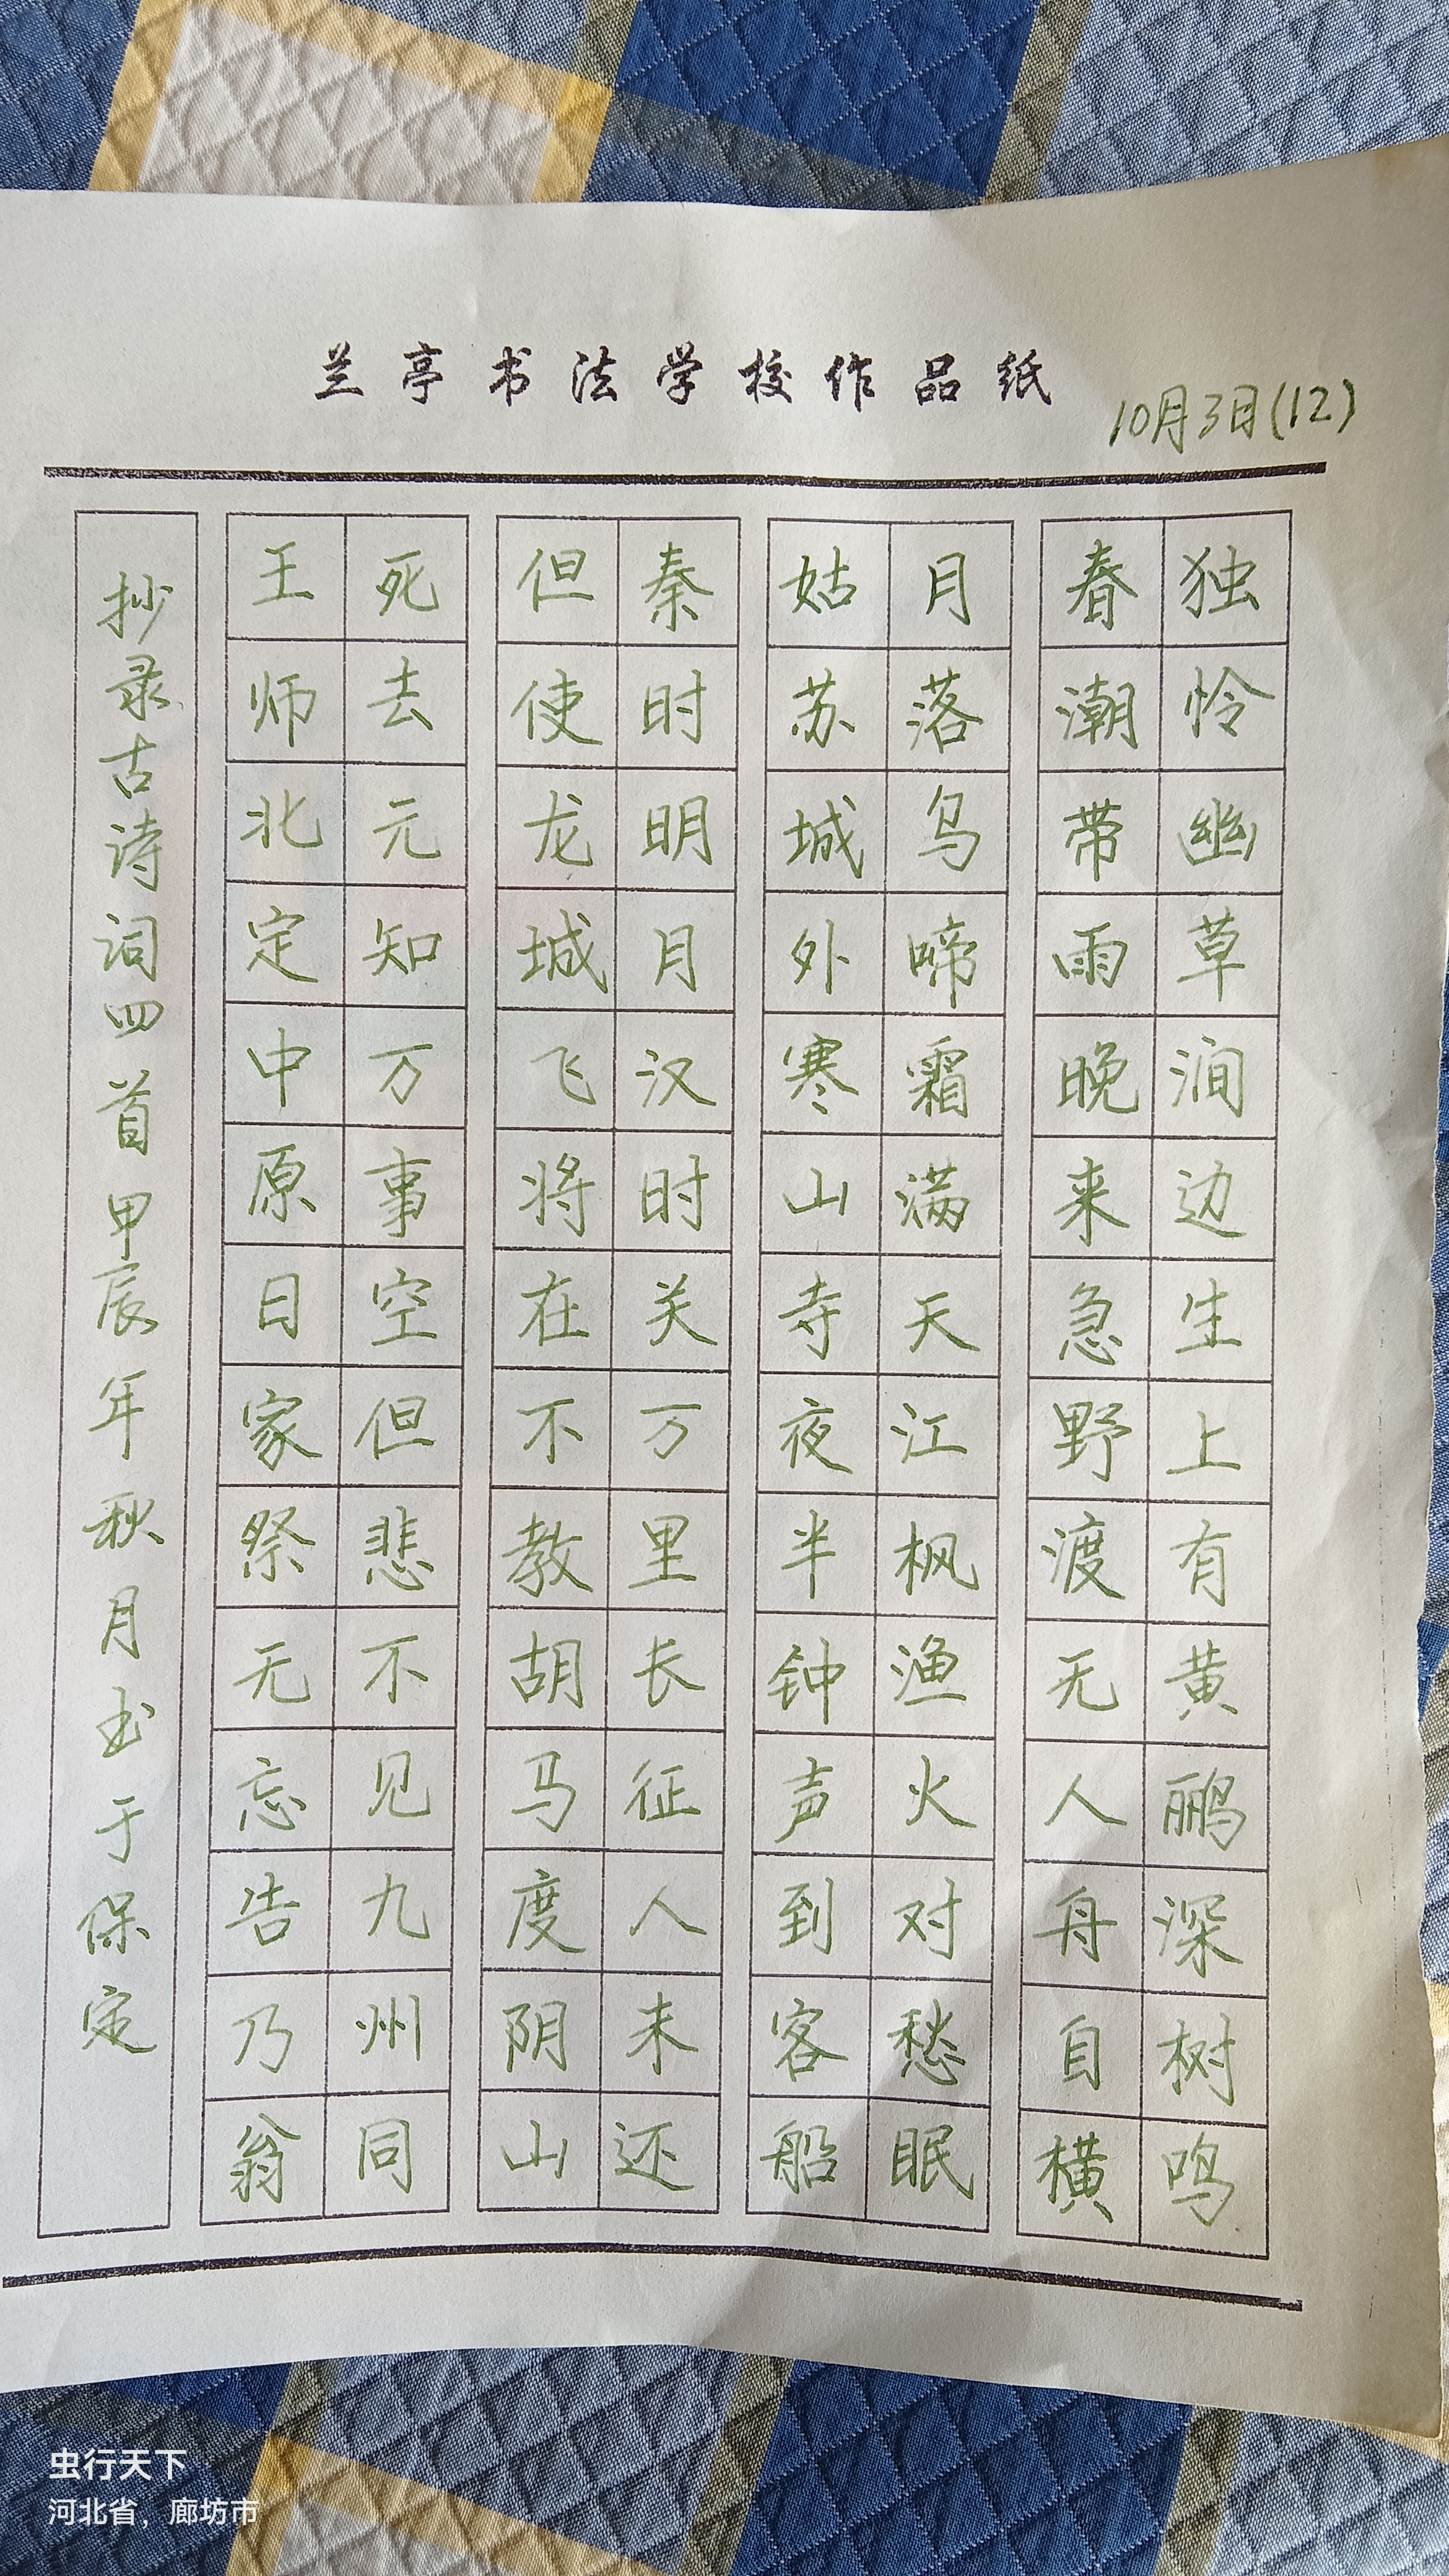 兰亭书法学校作品纸
10月3日(12)
独怜幽草涧边生上有黄鹂深树鸣
春潮带雨晚来急野渡无人舟自横
月落乌啼霜满天江枫渔火对愁眠
姑苏城外寒山寺夜半钟声到客船
秦时明月汉时关万里长征人未还
但使龙城飞将在不教胡马度阴山
死去元知万事空但悲不见九州同
王师北定中原日家祭无忘告乃翁
抄录古诗词四首甲辰年秋月书于保定
虫行天下
河北省，廊坊市